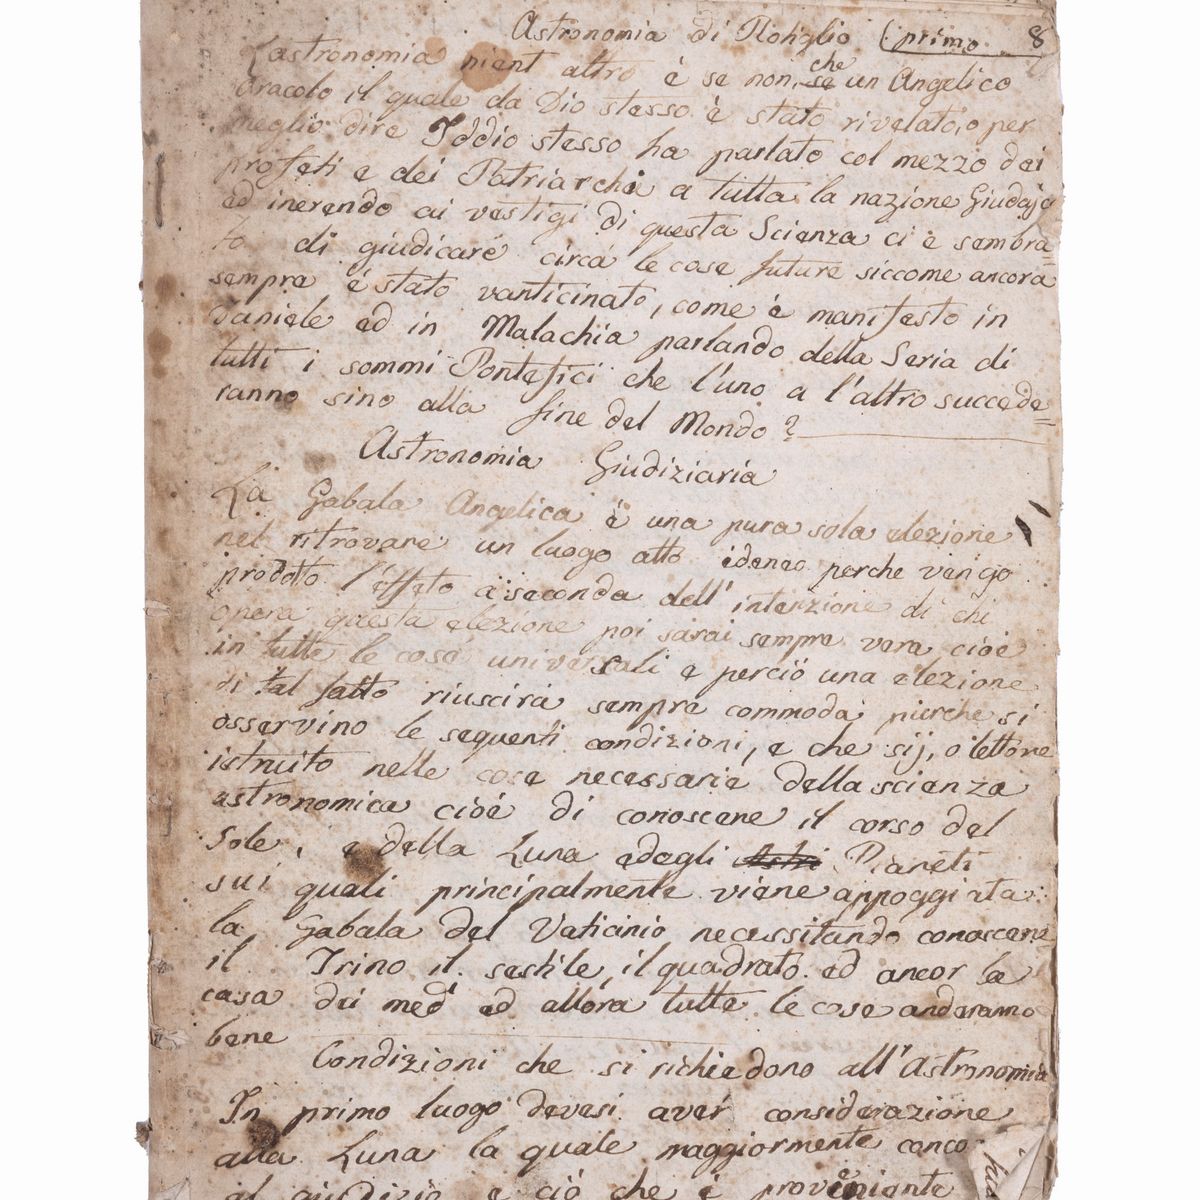 Astronomia di Roniglio (primo 8
L'astronomia nient altro è se non, che se un Angelico
Oracolo il quale da Dio stesso è stato rivelato, o per
meglio dire Iddio stesso ha parlato col mezzo dei
profeti e dei Patriarchi a tutta la nazione Giudaja
ed inerendo ai vestigi di questa Scienza ci è sembra=
to di giudicare circa le cose future siccome ancora
sempre è stato vanticinato, come è manifesto in
Daniele ed in Malachia parlando della Seria di
tutti i sommi Pontefici che l'uno a l'altro succede=
ranno sino alla fine del Mondo?
Astronomia Giudiziaria
La Gabala Angelica è una pura sola elezione
nel ritrovare un luogo atto idoneo perche vengo
prodotto l'effeto a seconda dell'intenzione di chi
opera questa elezione poi sarai sempre vera cioè
in tutte le cose universali e perciò una elezione
di tal fatto riuscirà sempre commoda, purche si
osservino le sequenti condizioni, e che sij, o lettore
istruito nelle cose necessarie della scienza
astronomica cioè di conoscere il corso del
Sole, e della Luna edegli Astri Pianeti
sui quali principalmente viene appoggiata
la Gabala del Vaticinio necessitando conoscere
il Trino il sestile, il quadrato ed ancor la
casa dei med' ed allora tutte le cose anderanno
bene
Condizioni che si richiedono all'Astronomia
In primo luogo devesi aver considerazione
alla Luna la quale maggiormente conco
al giudizio e ciò che è proveniente